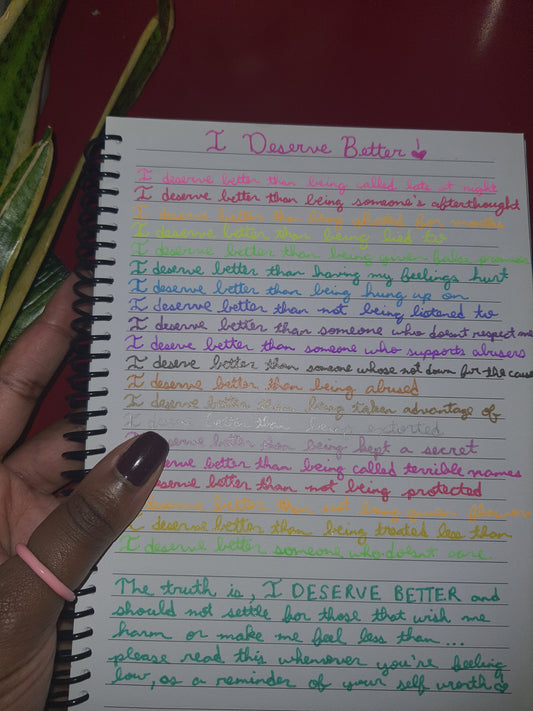 I Deserve Better
I deserve better than being called late at night
I deserve better than being someone's afterthought
I deserve better than being ghosted for months
I deserve better than being lied to
I deserve better than being given false promises
I deserve better than having my feelings hurt
I deserve better than being hung up on
I deserve better than not being listened to
I deserve better than someone who doesnt respect me
I deserve better than someone who supports abusers
I deserve better than someone whose not down for the cause
I deserve better than being abused
I deserve better than being taken advantage of
I deserve better than being extorted
deserve better than being kept a secret
deserve better than being called terrible names
deserve better than not being protected
deserve better than not being given flowers
I deserve better than being treated less than
I deserve better someone who doesnt care.
The truth is, I DESERVE BETTER and
should not settle for those that wish me
harm or make me feel less than...
please read this whenever you're feeling
low, as a reminder of your self worth